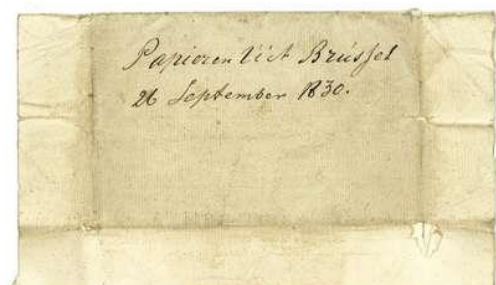 Papieren Uit Brüssel
26 September 1830.